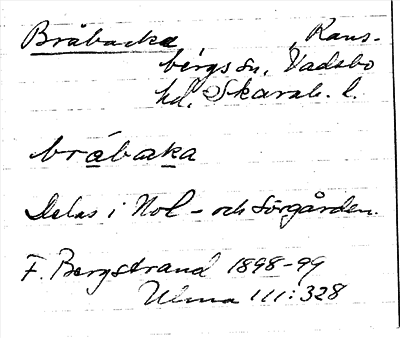 Bråbacka, Rans-
bergs sn, Vadsbo
hd, Skarab. l.
bråbaka
Delas i Nol- och Sörgården.
F. Bergstrand 1898-99
Ulma 111:328